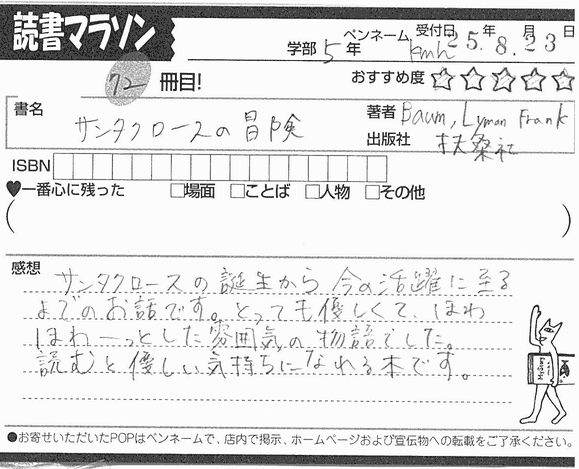 読書マラソン
学部 5年 ペンネーム kmh 受付日 25年 8月 23日
72 冊目!
おすすめ度 ☆☆☆☆☆
書名 サンタクロースの冒険
著者 Baum, Lyman Frank
出版社 扶桑社
ISBN
♥一番心に残った □場面 □ことば □人物 □その他
( )
感想 サンタクロースの誕生から今の活躍に至る
までのお話です。とっても優しくて、ほわ
ほわーっとした雰囲気の物語でした。
読むと優しい気持ちになれる本です。
●お寄せいただいたPOPはペンネームで、店内で掲示、ホームページおよび宣伝物への転載をご了承ください。